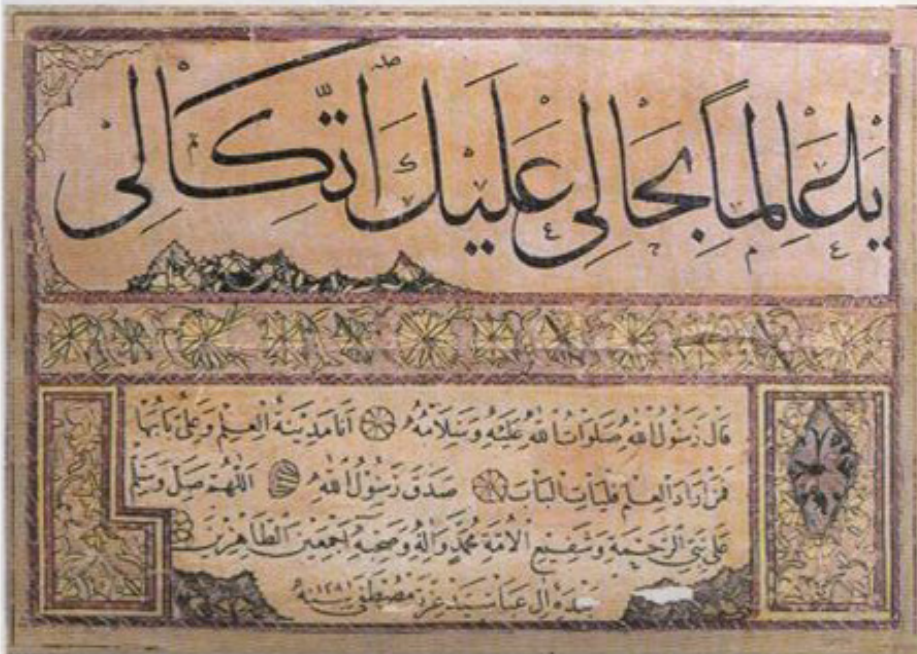 يَا عَالِمًا بِحَالِي عَلَيْكَ اتِّكَالِي
قال رسول الله صلوات الله عليه وسلامه انا مدينة العلم وعلي بابها
فمن اراد العلم فليأت الباب صدق رسول الله اللهم صل وسلم
على نبي الرحمة وشفيع الامة محمد وآله وصحبه اجمعين الطاهرين
بنده آل عبا سيد عزت مصطفى سنه ١٢٨١